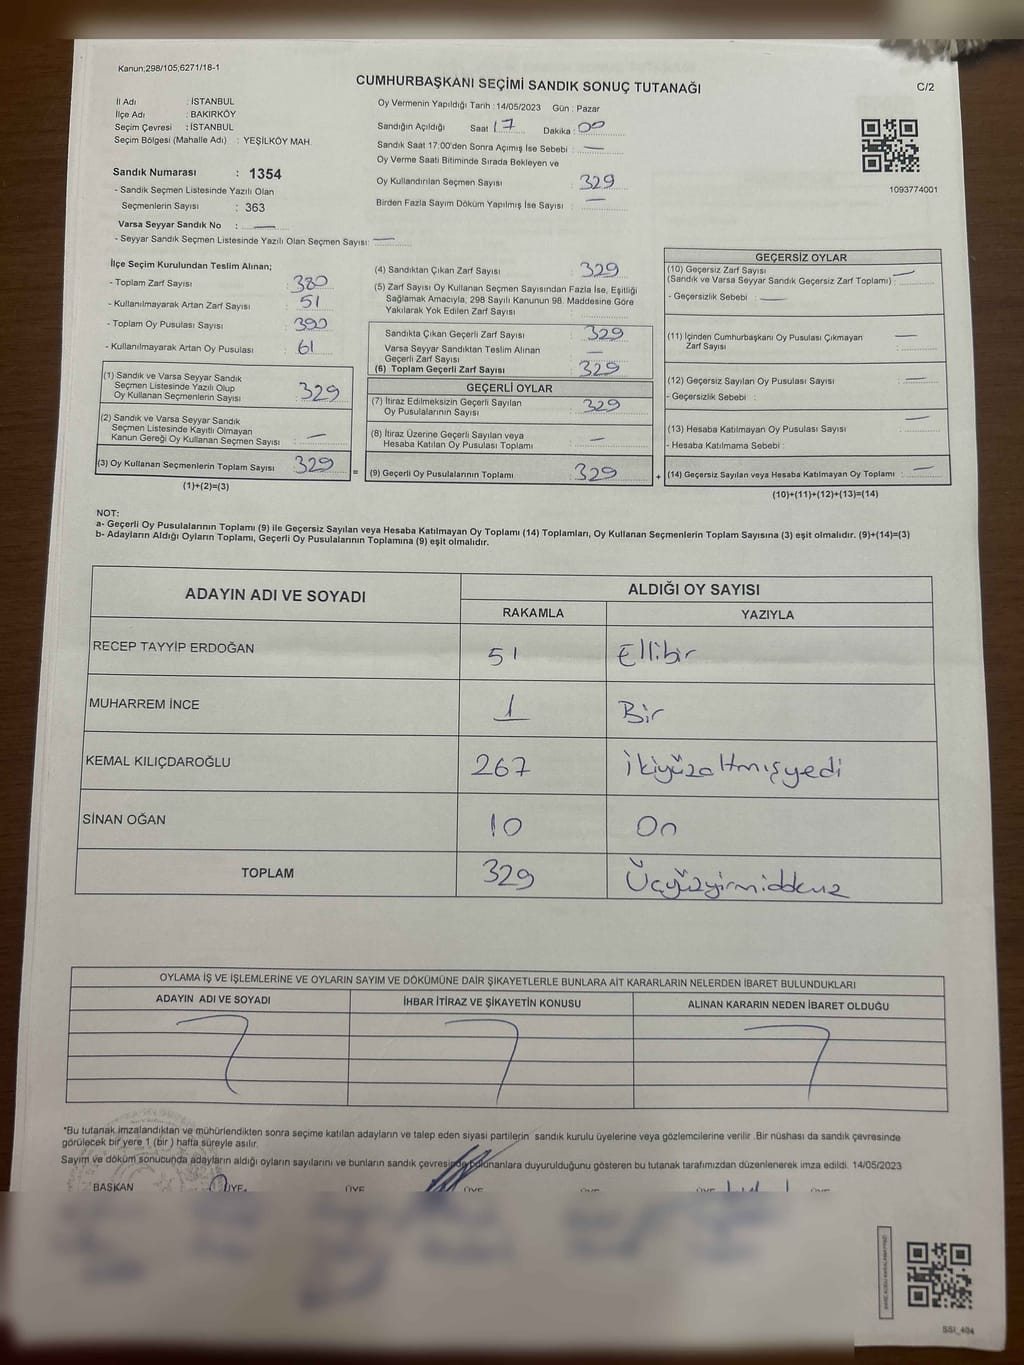 Kanun;298/105;6271/18-1
CUMHURBAŞKANI SEÇİMİ SANDIK SONUÇ TUTANAĞI
C/2
İl Adı : İSTANBUL
İlçe Adı : BAKIRKÖY
Seçim Çevresi : İSTANBUL
Seçim Bölgesi (Mahalle Adı) : YEŞİLKÖY MAH.
Sandık Numarası : 1354
- Sandık Seçmen Listesinde Yazılı Olan
Seçmenlerin Sayısı : 363
Varsa Seyyar Sandık No : —
- Seyyar Sandık Seçmen Listesinde Yazılı Olan Seçmen Sayısı: —
Oy Vermenin Yapıldığı Tarih : 14/05/2023 Gün : Pazar
Sandığın Açıldığı Saat 17 Dakika : 00
Sandık Saat 17:00'den Sonra Açılmış İse Sebebi : —
Oy Verme Saati Bitiminde Sırada Bekleyen ve
Oy Kullandırılan Seçmen Sayısı : 329
Birden Fazla Sayım Döküm Yapılmış İse Sayısı : —
1093774001
İlçe Seçim Kurulundan Teslim Alınan;
- Toplam Zarf Sayısı : 380
- Kullanılmayarak Artan Zarf Sayısı : 51
- Toplam Oy Pusulası Sayısı : 390
- Kullanılmayarak Artan Oy Pusulası : 61
(1) Sandık ve Varsa Seyyar Sandık
Seçmen Listesinde Yazılı Olup
Oy Kullanan Seçmenlerin Sayısı : 329
(2) Sandık ve Varsa Seyyar Sandık
Seçmen Listesinde Kayıtlı Olmayan
Kanun Gereği Oy Kullanan Seçmen Sayısı : —
(3) Oy Kullanan Seçmenlerin Toplam Sayısı : 329
(1)+(2)=(3)
=
(4) Sandıktan Çıkan Zarf Sayısı : 329
(5) Zarf Sayısı Oy Kullanan Seçmen Sayısından Fazla İse, Eşitliği
Sağlamak Amacıyla, 298 Sayılı Kanunun 98. Maddesine Göre
Yakılarak Yok Edilen Zarf Sayısı :
Sandıkta Çıkan Geçerli Zarf Sayısı : 329
Varsa Seyyar Sandıktan Teslim Alınan
Geçerli Zarf Sayısı : —
(6) Toplam Geçerli Zarf Sayısı : 329
GEÇERLİ OYLAR
(7) İtiraz Edilmeksizin Geçerli Sayılan
Oy Pusulalarının Sayısı : 329
(8) İtiraz Üzerine Geçerli Sayılan veya
Hesaba Katılan Oy Pusulası Toplamı : —
(9) Geçerli Oy Pusulalarının Toplamı : 329
+
GEÇERSİZ OYLAR
(10) Geçersiz Zarf Sayısı
(Sandık ve Varsa Seyyar Sandık Geçersiz Zarf Toplamı) : —
- Geçersizlik Sebebi : —
(11) İçinden Cumhurbaşkanı Oy Pusulası Çıkmayan
Zarf Sayısı : —
(12) Geçersiz Sayılan Oy Pusulası Sayısı : —
- Geçersizlik Sebebi :
(13) Hesaba Katılmayan Oy Pusulası Sayısı : —
- Hesaba Katılmama Sebebi :
(14) Geçersiz Sayılan veya Hesaba Katılmayan Oy Toplamı : —
(10)+(11)+(12)+(13)=(14)
NOT:
a- Geçerli Oy Pusulalarının Toplamı (9) ile Geçersiz Sayılan veya Hesaba Katılmayan Oy Toplamı (14) Toplamları, Oy Kullanan Seçmenlerin Toplam Sayısına (3) eşit olmalıdır. (9)+(14)=(3)
b- Adayların Aldığı Oyların Toplamı, Geçerli Oy Pusulalarının Toplamına (9) eşit olmalıdır.
ADAYIN ADI VE SOYADI
ALDIĞI OY SAYISI
RAKAMLA YAZIYLA
RECEP TAYYİP ERDOĞAN 51 Ellibir
MUHARREM İNCE 1 Bir
KEMAL KILIÇDAROĞLU 267 İkiyüzaltmışyedi
SİNAN OĞAN 10 On
TOPLAM 329 Üçyüzyirmidokuz
OYLAMA İŞ VE İŞLEMLERİNE VE OYLARIN SAYIM VE DÖKÜMÜNE DAİR ŞİKAYETLERLE BUNLARA AİT KARARLARIN NELERDEN İBARET BULUNDUKLARI
ADAYIN ADI VE SOYADI İHBAR İTİRAZ VE ŞİKAYETİN KONUSU ALINAN KARARIN NEDEN İBARET OLDUĞU
*Bu tutanak imzalandıktan ve mühürlendikten sonra seçime katılan adayların ve talep eden siyasi partilerin sandık kurulu üyelerine veya gözlemcilerine verilir .Bir nüshası da sandık çevresinde
görülecek bir yere 1 (bir ) hafta süreyle asılır.
Sayım ve döküm sonucunda adayların aldığı oyların sayılarını ve bunların sandık çevresinde bulunanlara duyurulduğunu gösteren bu tutanak tarafımızdan düzenlenerek imza edildi. 14/05/2023
BAŞKAN ÜYE ÜYE ÜYE ÜYE ÜYE ÜYE
SSI_404